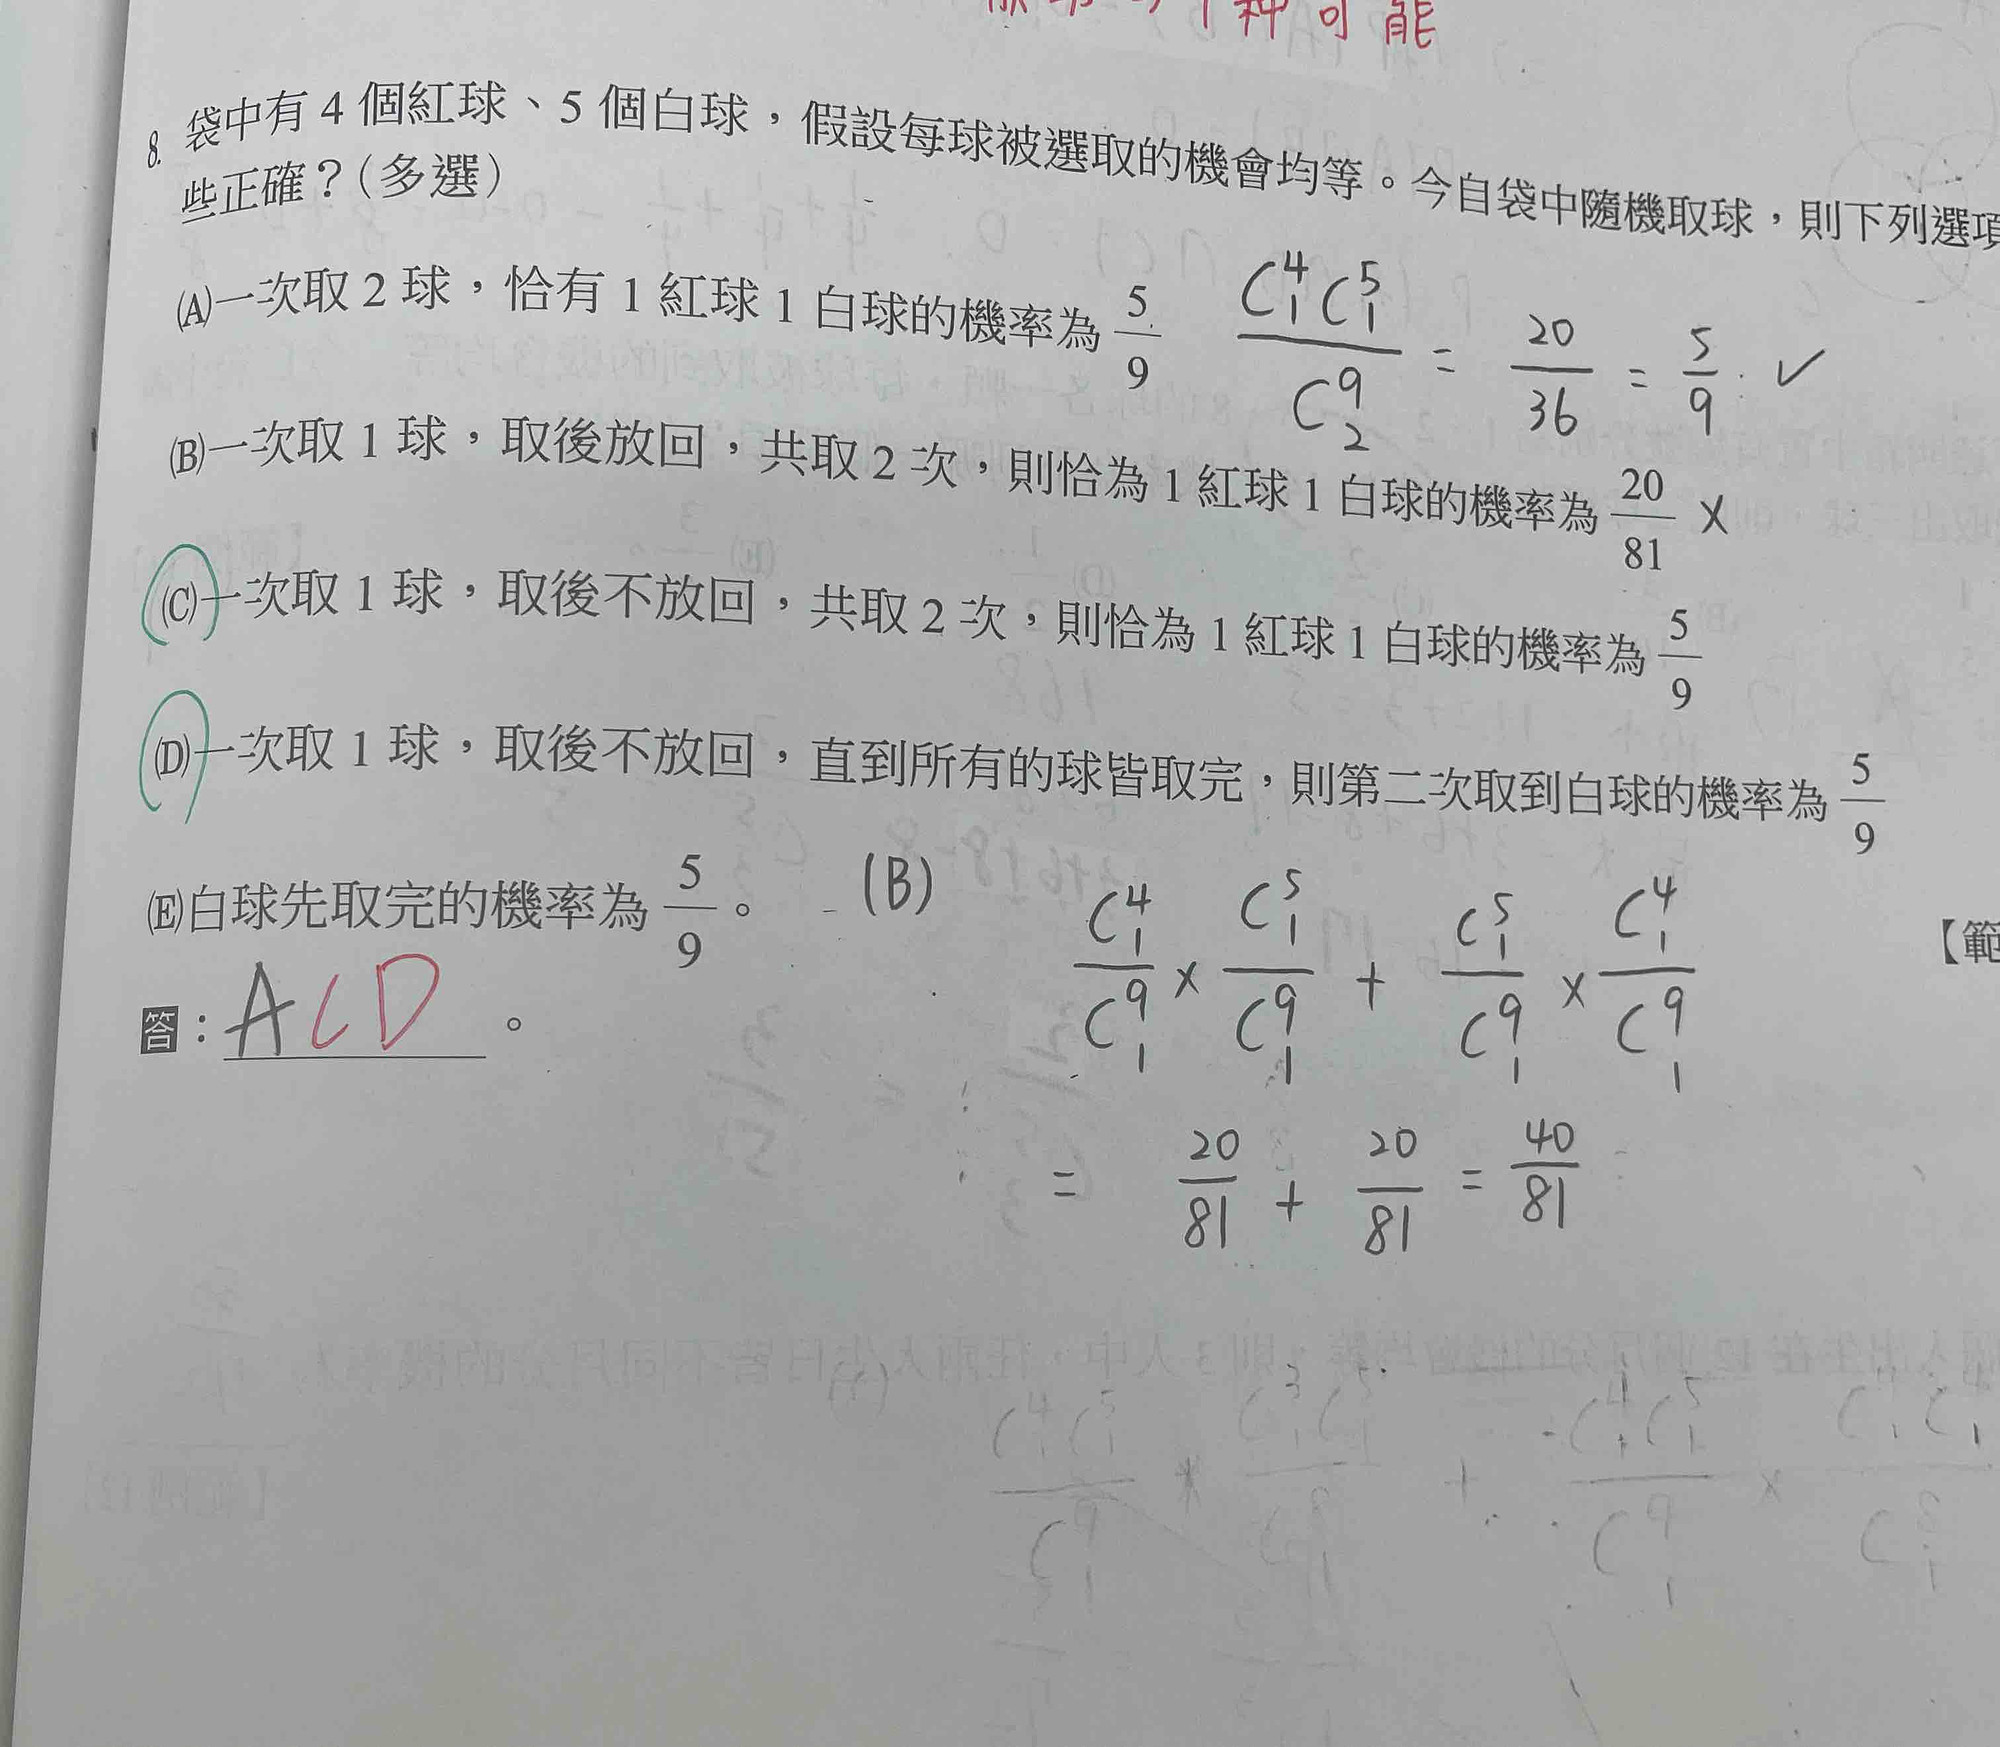 種可能
8. 袋中有 4 個紅球、5 個白球,假設每球被選取的機會均等。今自袋中隨機取球,則下列選項
些正確?(多選)
(A)一次取 2 球,恰有 1 紅球 1 白球的機率為 5/9 C^4_1 C^5_1 / C^9_2 = 20/36 = 5/9 ✓
(B)一次取 1 球,取後放回,共取 2 次,則恰為 1 紅球 1 白球的機率為 20/81 ×
(C)一次取 1 球,取後不放回,共取 2 次,則恰為 1 紅球 1 白球的機率為 5/9
(D)一次取 1 球,取後不放回,直到所有的球皆取完,則第二次取到白球的機率為 5/9
(E)白球先取完的機率為 5/9。
【範
答:ACD。
(B) C^4_1/C^9_1 × C^5_1/C^9_1 + C^5_1/C^9_1 × C^4_1/C^9_1
= 20/81 + 20/81 = 40/81